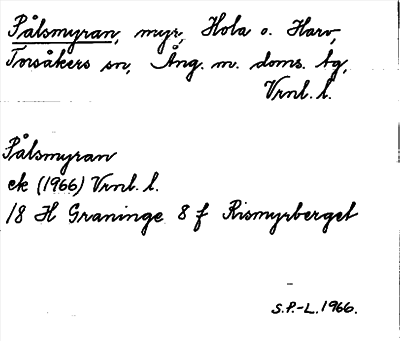 Pålsmyran, myr, Hola o. Harv,
Torsåkers sn, Ång. m. doms. tg,
Vrnl. l.
Pålsmyran
ek (1966) Vrnl. l.
18 H Graninge 8 f Rismyrberget
S.P.-L. 1966.